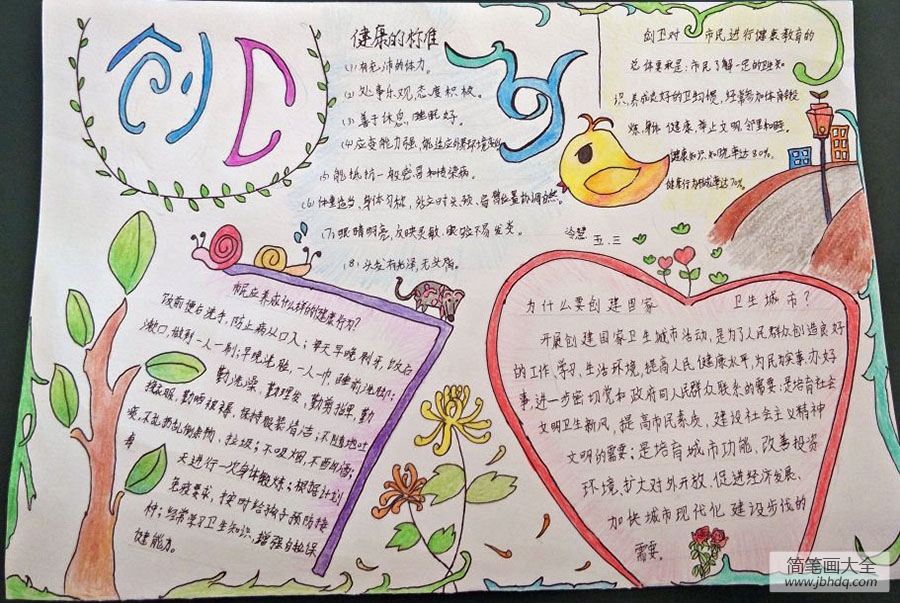 创卫
健康的标准
(1) 有充沛的体力。
(2) 处事乐观,态度积极。
(3) 善于休息,睡眠好。
(4) 应变能力强,能适应外界环境变化。
(5) 能抵抗一般感冒和传染病。
(6) 体重适当,身体匀称,站立时头、肩、臀位置协调自然。
(7) 眼睛明亮,反映灵敏,眼睑不易发炎。
(8) 头发有光泽,无头屑。
创卫对 市民进行健康教育的
总体要求是:市民了解一定的卫生知
识,养成良好的卫生习惯,经常参加体育锻
炼,身体健康,举止文明,邻里和睦。
健康知识知晓率达80%。
健康行为形成率达70%。
五.三
市民应养成什么样的健康行为?
饭前便后洗手,防止病从口入;每天早晚刷牙,饮食后
漱口,做到一人一刷;早晚洗脸,一人一巾,睡前洗脚;
勤洗澡、勤理发、勤剪指甲,勤
换衣服,勤晒被褥,保持服装清洁;不随地吐
痰,不乱扔乱倒杂物、垃圾;不吸烟,不酗酒;
每
天进行一次身体锻炼;根据计划
免疫要求,按时给孩子预防接
种;经常学习卫生知识,增强自我保
健能力。
为什么要创建国家 卫生城市?
开展创建国家卫生城市活动,是为了人民群众创造良好
的工作、学习、生活环境,提高人民健康水平,为民办实事、办好
事,进一步密切党和政府同人民群众联系的需要;是培育社会
文明卫生新风,提高市民素质,建设社会主义精神
文明的需要;是培育城市功能,改善投资
环境,扩大对外开放,促进经济发展,
加快城市现代化建设步伐的
需要。
简笔画大全
www.jbhdq.com